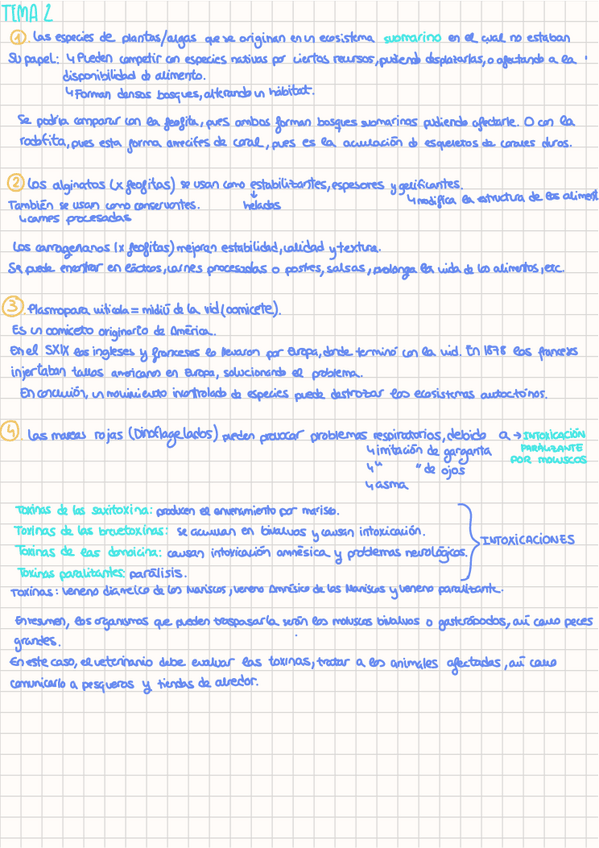 TEMA 2
1 Las especies de plantas/algas que se originan en un ecosistema submarino en el cual no estaban
Su papel: ↳ Pueden competir con especies nativas por ciertos recursos, pudiendo desplazarlas, o afectando a la
disponibilidad de alimento.
↳ Forman densos bosques, alterando un hábitat.
Se podría comparar con la feofita, pues ambas forman bosques submarinos pudiendo afectarle. O con la
rodofita, pues esta forma arrecifes de coral, pues es la acumulación de esqueletos de corales duros.
2 Los alginatos (x feofitas) se usan como estabilizantes, espesores y gelificantes.
También se usan como conservantes.
helados
↳ modifica la estructura de los aliment
↳ carnes procesadas
Los carragenanos (x feofitas) mejoran estabilidad, calidad y textura.
Se puede encontrar en lácteos, carnes procesadas o postres, salsas, prolonga la vida de los alimentos, etc.
3 Plasmopara viticola = mildiú de la vid (oomicete).
Es un oomiceto originario de América.
En el SXIX los ingleses y franceses lo llevaron por Europa, donde terminó con la vid. En 1878 los franceses
injertaban tallos americanos en Europa, solucionando el problema.
En conclusión, un movimiento incontrolado de especies puede destrozar los ecosistemas autoctonos.
4 Las mareas rojas (Dinoflagelados) pueden provocar problemas respiratorios, debido a → INTOXICACIÓN
PARALIZANTE
POR MOLUSCOS
↳ irritación de garganta
↳ " " de ojos
↳ asma
Toxinas de las saxitoxina: producen el envenamiento por marisco.
Toxinas de las brevetoxinas: se acumulan en bivalvos y causan intoxicación.
Toxinas de las domoicina: causan intoxicación amnésica y problemas neurológicos.
Toxinas paralitantes: parálisis.
INTOXICACIONES
Toxinas: veneno diarreico de los Mariscos, veneno Amnésico de los Mariscos y veneno paralitante.
En resumen, los organismos que pueden traspasarla serán los moluscos bivalvos o gasterópodos, así como peces
grandes.
En este caso, el veterinario debe evaluar las toxinas, tratar a los animales afectados, así como
comunicarlo a pesqueros y tiendas de alredor.